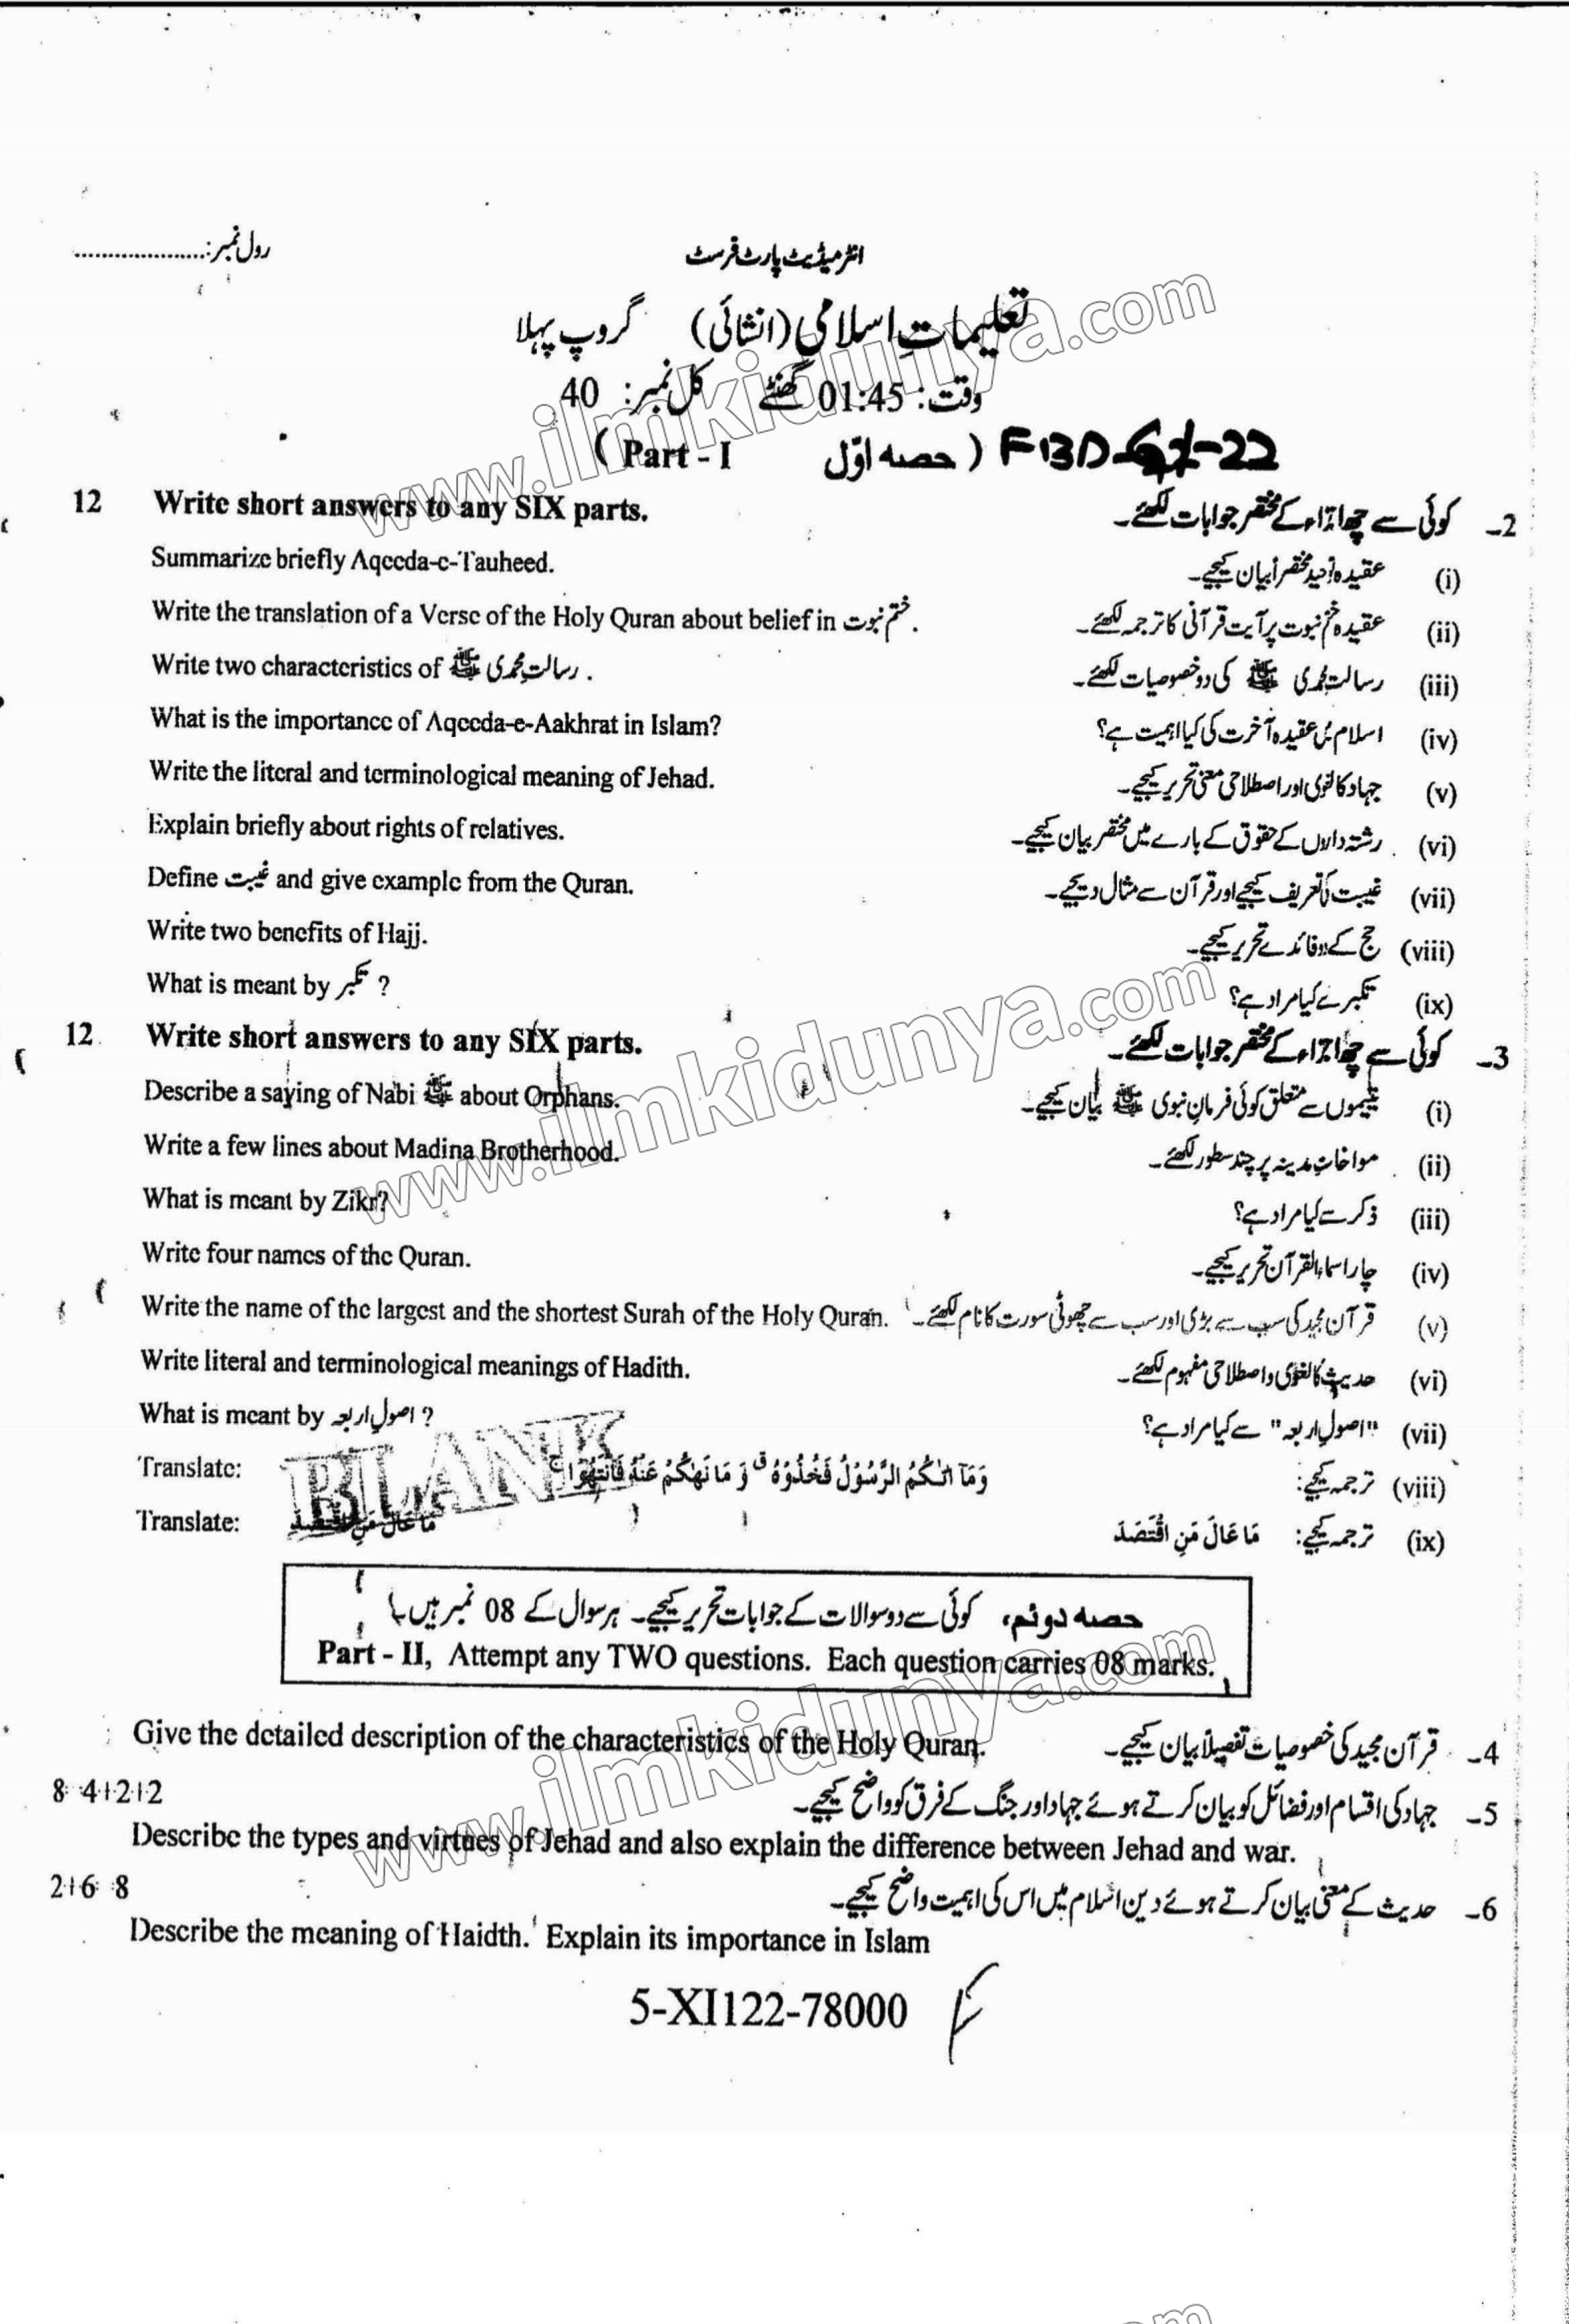 انٹرمیڈیٹ پارٹ فرسٹ
رول نمبر:....................
تعلیماتِ اسلامی (انشائی) گروپ پہلا
وقت: 01:45 گھنٹے کل نمبر: 40
(Part - I حصہ اوّل) FBD-G1-22
12 Write short answers to any SIX parts. کوئی سے چھ اجزاء کے مختصر جوابات لکھئے۔ 2-
Summarize briefly Aqeeda-e-Tauheed. عقیدہ توحید مختصراً بیان کیجیے۔ (i)
Write the translation of a Verse of the Holy Quran about belief in ختم نبوت. عقیدہ ختم نبوت پر آیت قرآنی کا ترجمہ لکھئے۔ (ii)
Write two characteristics of رسالتِ محمدی ﷺ. رسالتِ محمدی ﷺ کی دو خصوصیات لکھئے۔ (iii)
What is the importance of Aqeeda-e-Aakhrat in Islam? اسلام میں عقیدہ آخرت کی کیا اہمیت ہے؟ (iv)
Write the literal and terminological meaning of Jehad. جہاد کا لغوی اور اصطلاحی معنی تحریر کیجیے۔ (v)
Explain briefly about rights of relatives. رشتہ داروں کے حقوق کے بارے میں مختصر بیان کیجیے۔ (vi)
Define غیبت and give example from the Quran. غیبت کی تعریف کیجیے اور قرآن سے مثال دیجیے۔ (vii)
Write two benefits of Hajj. حج کے دو فائدے تحریر کیجیے۔ (viii)
What is meant by تکبر ? تکبر سے کیا مراد ہے؟ (ix)
12 Write short answers to any SIX parts. کوئی سے چھ اجزاء کے مختصر جوابات لکھئے۔ 3-
Describe a saying of Nabi ﷺ about Orphans. یتیموں سے متعلق کوئی فرمانِ نبوی ﷺ بیان کیجیے۔ (i)
Write a few lines about Madina Brotherhood. مواخاتِ مدینہ پر چند سطور لکھئے۔ (ii)
What is meant by Zikr? ذکر سے کیا مراد ہے؟ (iii)
Write four names of the Quran. چار اسماء القرآن تحریر کیجیے۔ (iv)
Write the name of the largest and the shortest Surah of the Holy Quran. قرآن مجید کی سب سے بڑی اور سب سے چھوٹی سورت کا نام لکھئے۔ (v)
Write literal and terminological meanings of Hadith. حدیث کا لغوی و اصطلاحی مفہوم لکھئے۔ (vi)
What is meant by اصولِ اربعہ ? "اصولِ اربعہ" سے کیا مراد ہے؟ (vii)
Translate: وَمَآ اٰتٰكُمُ الرَّسُوْلُ فَخُذُوْهُ ۚ وَ مَا نَهٰكُمْ عَنْهُ فَانْتَهُوْا ۚ ترجمہ کیجیے: (viii)
BLANK
Translate: مَا عَالَ مَنِ اقْتَصَدَ ترجمہ کیجیے: مَا عَالَ مَنِ اقْتَصَدَ (ix)
حصہ دوئم، کوئی سے دو سوالات کے جوابات تحریر کیجیے۔ ہر سوال کے 08 نمبر ہیں۔
Part - II, Attempt any TWO questions. Each question carries 08 marks.
Give the detailed description of the characteristics of the Holy Quran. قرآن مجید کی خصوصیات تفصیلاً بیان کیجیے۔ 4-
8 4+2+2 جہاد کی اقسام اور فضائل کو بیان کرتے ہوئے جہاد اور جنگ کے فرق کو واضح کیجیے۔ 5-
Describe the types and virtues of Jehad and also explain the difference between Jehad and war.
2+6 8 حدیث کے معنی بیان کرتے ہوئے دین اسلام میں اس کی اہمیت واضح کیجیے۔ 6-
Describe the meaning of Haidth. Explain its importance in Islam
5-XI122-78000
www.ilmkidunya.com
www.ilmkidunya.com
www.ilmkidunya.com
.com